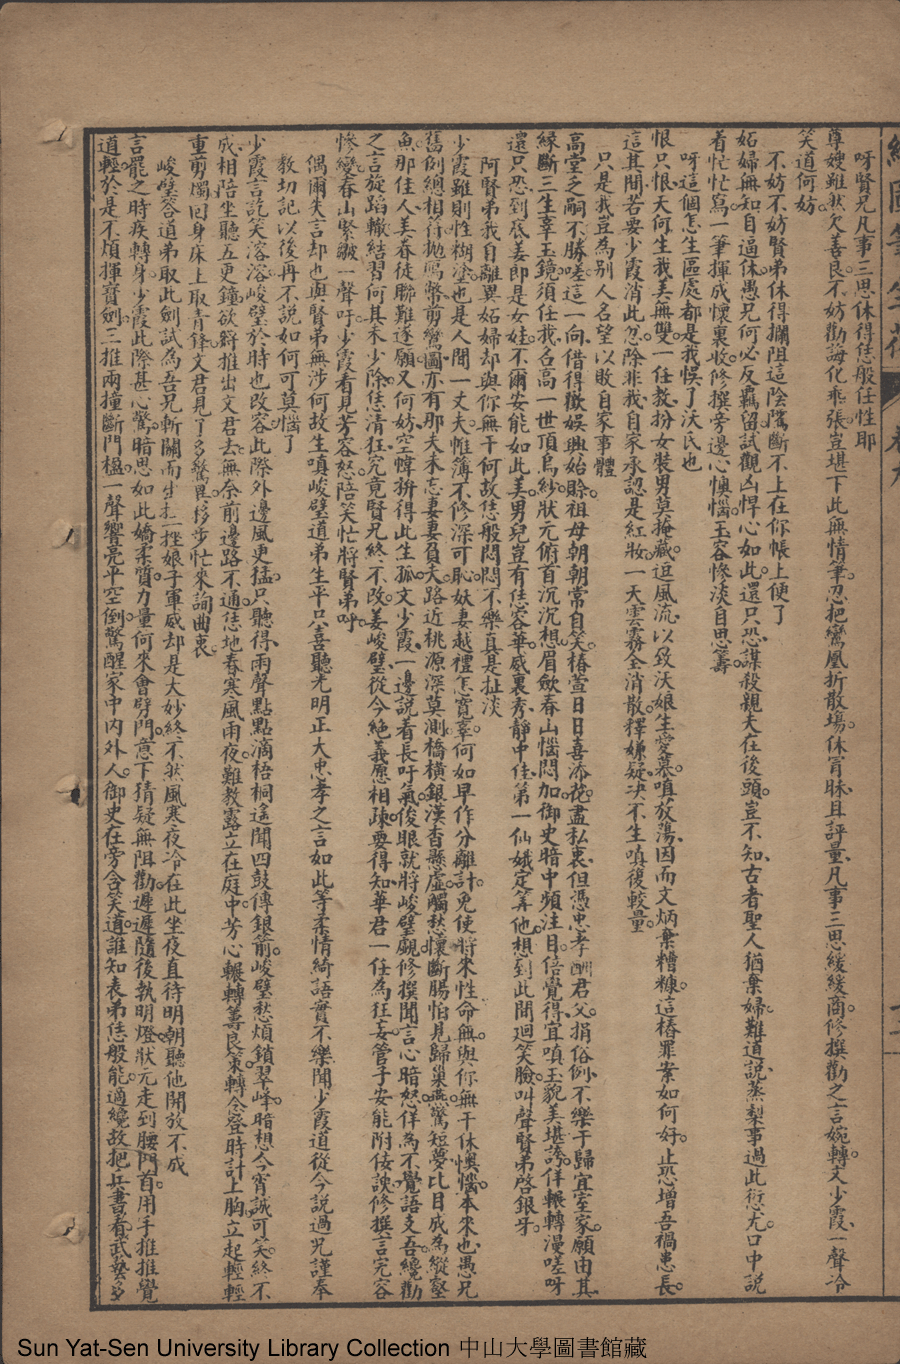 呀賢兄凡事三思休得恁般任性耶
尊嫂雖然欠善良不妨勸誨化乖張豈堪下此無情筆忍把鸞凰折散場休冒昧且評量凡事三思緩緩商修撰勸之言婉轉文少霞一聲冷
笑道何妨
不妨不妨賢弟休得攔阻這陰隲斷不上在你帳上便了
妬婦無知自逼休愚兄何必反羈留試觀凶悍心如此還只恐謀殺親夫在後頭豈不知古者聖人猶棄婦難道説蒸梨事過此愆尤口中説
着忙忙寫一筆揮成懷裏收修撰旁邊心懊惱玉容慘淡自思籌
呀這個怎生區處都是我悞了沃氏也
恨只恨天何生我美無雙一任教扮女裝男莫掩藏逗風流以致沃娘生愛慕嗔放蕩因而文炳棄糟糠這樁罪案如何好止恐增吾禍患長
這其間若要少霞消此忿除非我自家承認是紅妝一天雲霧全消散釋嫌疑决不生嗔復較量
只是我豈為别人名望以敗自家事體
高堂之嗣不勝嗟這一向借得徽娛興始賒祖母朝朝常自笑椿萱日日喜添花盡私衷但憑忠孝酬君父捐俗例不樂于歸宜室家願由其
緣斷三生辜玉鏡須任我名高一世頂烏紗狀元俯首沉沉想眉斂春山惱悶加御史暗中頻注目倍覺得宜嗔玉貌美堪誇佯輾轉漫嗟呀
還只恐到底美即是女娃不爾安能如此美男兒豈有佳容華威裏秀靜中佳第一仙娥定筭他想到此間迴笑臉叫聲賢弟啓銀牙
阿賢弟我自離異妬婦却與你無干何故恁般悶悶不樂真是扯淡
少霞雖則性糊塗也是人間一丈夫帷薄不修深可恥妖妻越禮怎寬辜何如早作分離計免使將來性命無與你無干休懊惱本來也愚兄
舊例總相符拋鳳幣剪鸞圖亦有那夫未忘妻妻負夫路近桃源深莫測橋橫銀漢杳懸虛觸愁懷斷腸怕見歸巢燕驚短夢比目成為縱壑
魚那佳人美春徒聯難遂願又何妨空幃拚得此生孤文少霞一邊説着長吁氣俊眼就將峻璧覷修撰聞言心暗怒佯為不覺語支吾纔勸
之言旋蹈轍結習何其未少除恁清狂究竟賢兄終不改姜峻璧從今絶義愿相疎要得知華君一任為狂妄管子安能附佞諛修撰言完容
慘變春山緊皺一聲吁少霞看見芳容怒陪笑忙將賢弟呼
偶爾失言却也與賢弟無涉何故生嗔峻璧道弟生平只喜聽光明正大忠孝之言如此等柔情綺語實不樂聞少霞道從今説過兄謹奉
教切記以後再不説如何可莫惱了
少霞言訖笑溶溶峻璧於時也改容此際外邊風更猛只聽得雨聲點點滴梧桐遙聞四鼓傳銀箭峻璧愁煩鎖翠峰暗想今宵誠可笑終不
成相陪坐聽五更鐘欲將推出文君去無奈前邊路不通恁地春寒風雨夜難教露立在庭中芳心輾轉籌良策轉念登時計上胸立起輕輕
重剪燭回身床上取青鋒文君見了多驚畏移步忙來詢曲衷
峻璧答道弟取此劍試為吾兄斬關而生
言罷之時疾轉身少霞此際甚心驚暗思如此嬌柔質力量何來會劈門意下猜疑無阻勸遲遲隨後執明燈狀元走到腰門首用手推推覺
道輕於是不煩揮寶劍三推兩撞斷門楹一聲響亮平空倒驚醒家中内外人御史在旁含笑道誰知表弟恁般能適纔故把兵書看武藝多
Sun Yat-Sen University Library Collection 中山大學圖書館藏